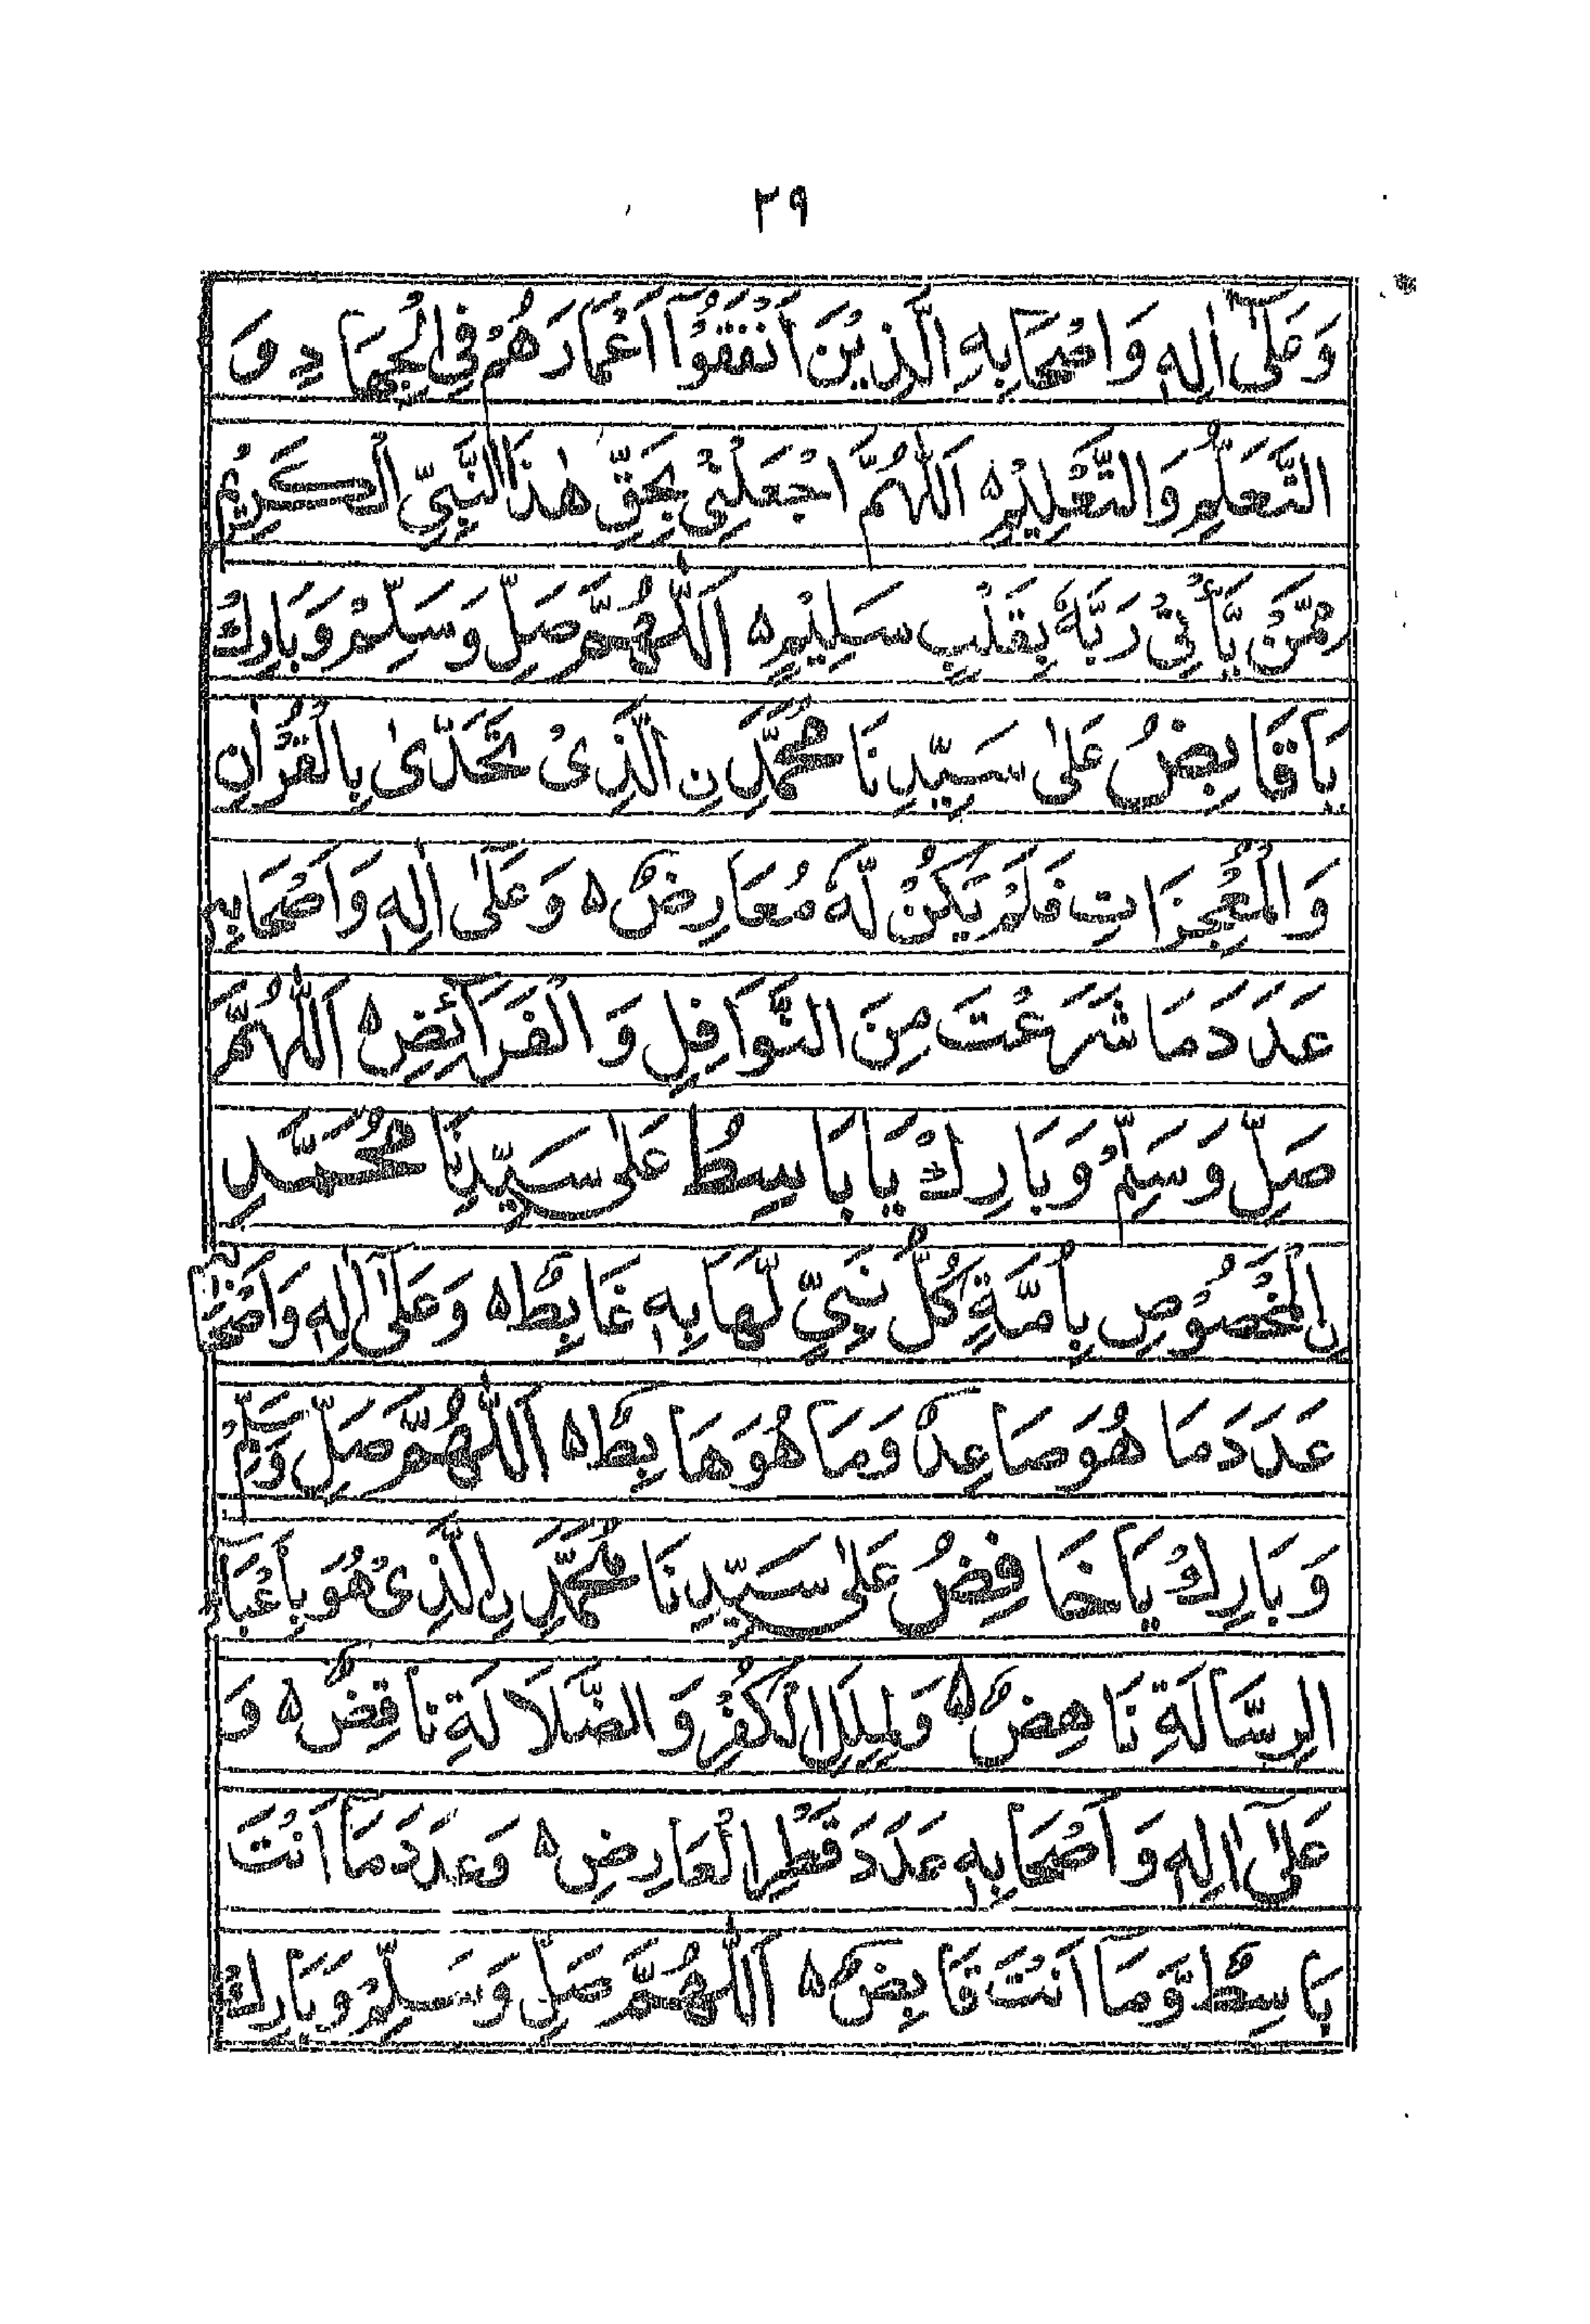 ٢٩
وَعَلٰٓى اٰلِهٖ وَاَصْحَابِهِ الَّذِيْنَ اَنْفَقُوْٓا اَعْمَارَهُمْ فِى الْجِهَادِ وَ
التَّعَلُّمِ وَالتَّعْلِيْمِ ہ اَللّٰهُمَّ اجْعَلْنِىْ بِحَقِّ هٰذَا النَّبِىِّ الْكَرِيْمِ
مِمَّنْ يَّأْتِىْ رَبَّهٗ بِقَلْبٍ سَلِيْمٍ ہ اَللّٰهُمَّ صَلِّ وَسَلِّمْ وَبَارِكْ
يَا قَابِضُ عَلٰى سَيِّدِنَا مُحَمَّدِ نِ الَّذِىْ تَحَدّٰى بِالْقُرْاٰنِ
وَالْمُعْجِزَاتِ فَلَمْ يَكُنْ لَّهٗ مُعَارِضٌ ہ وَعَلٰٓى اٰلِهٖ وَاَصْحَابِهٖ
عَدَدَ مَا شَرَعْتَ مِنَ النَّوَافِلِ وَالْفَرَآئِضِ ہ اَللّٰهُمَّ
صَلِّ وَسَلِّمْ وَبَارِكْ يَا بَاسِطُ عَلٰى سَيِّدِنَا مُحَمَّدِ
نِ الْمَخْصُوْصِ بِاُمَّةٍ كُلُّ نَبِىٍّ لَّهَا بِهٖ غَابِطٌ ہ وَعَلٰٓى اٰلِهٖ وَاَصْحَابِهٖ
عَدَدَ مَا هُوَ صَاعِدٌ وَمَا هُوَ هَابِطٌ ہ اَللّٰهُمَّ صَلِّ وَسَلِّمْ
وَبَارِكْ يَا خَافِضُ عَلٰى سَيِّدِنَا مُحَمَّدِ نِ الَّذِىْ هُوَ بِاَعْبَاءِ
الرِّسَالَةِ نَاهِضٌ ہ وَلِمِلَلِ الْكُفْرِ وَالضَّلَالَةِ نَاقِضٌ ہ وَ
عَلٰٓى اٰلِهٖ وَاَصْحَابِهٖ عَدَدَ قَطْرِ الْعَارِضِ ہ وَعَدَدَ مَا اَنْتَ
بَاسِطٌ وَّمَا اَنْتَ قَابِضٌ ہ اَللّٰهُمَّ صَلِّ وَسَلِّمْ وَبَارِكْ